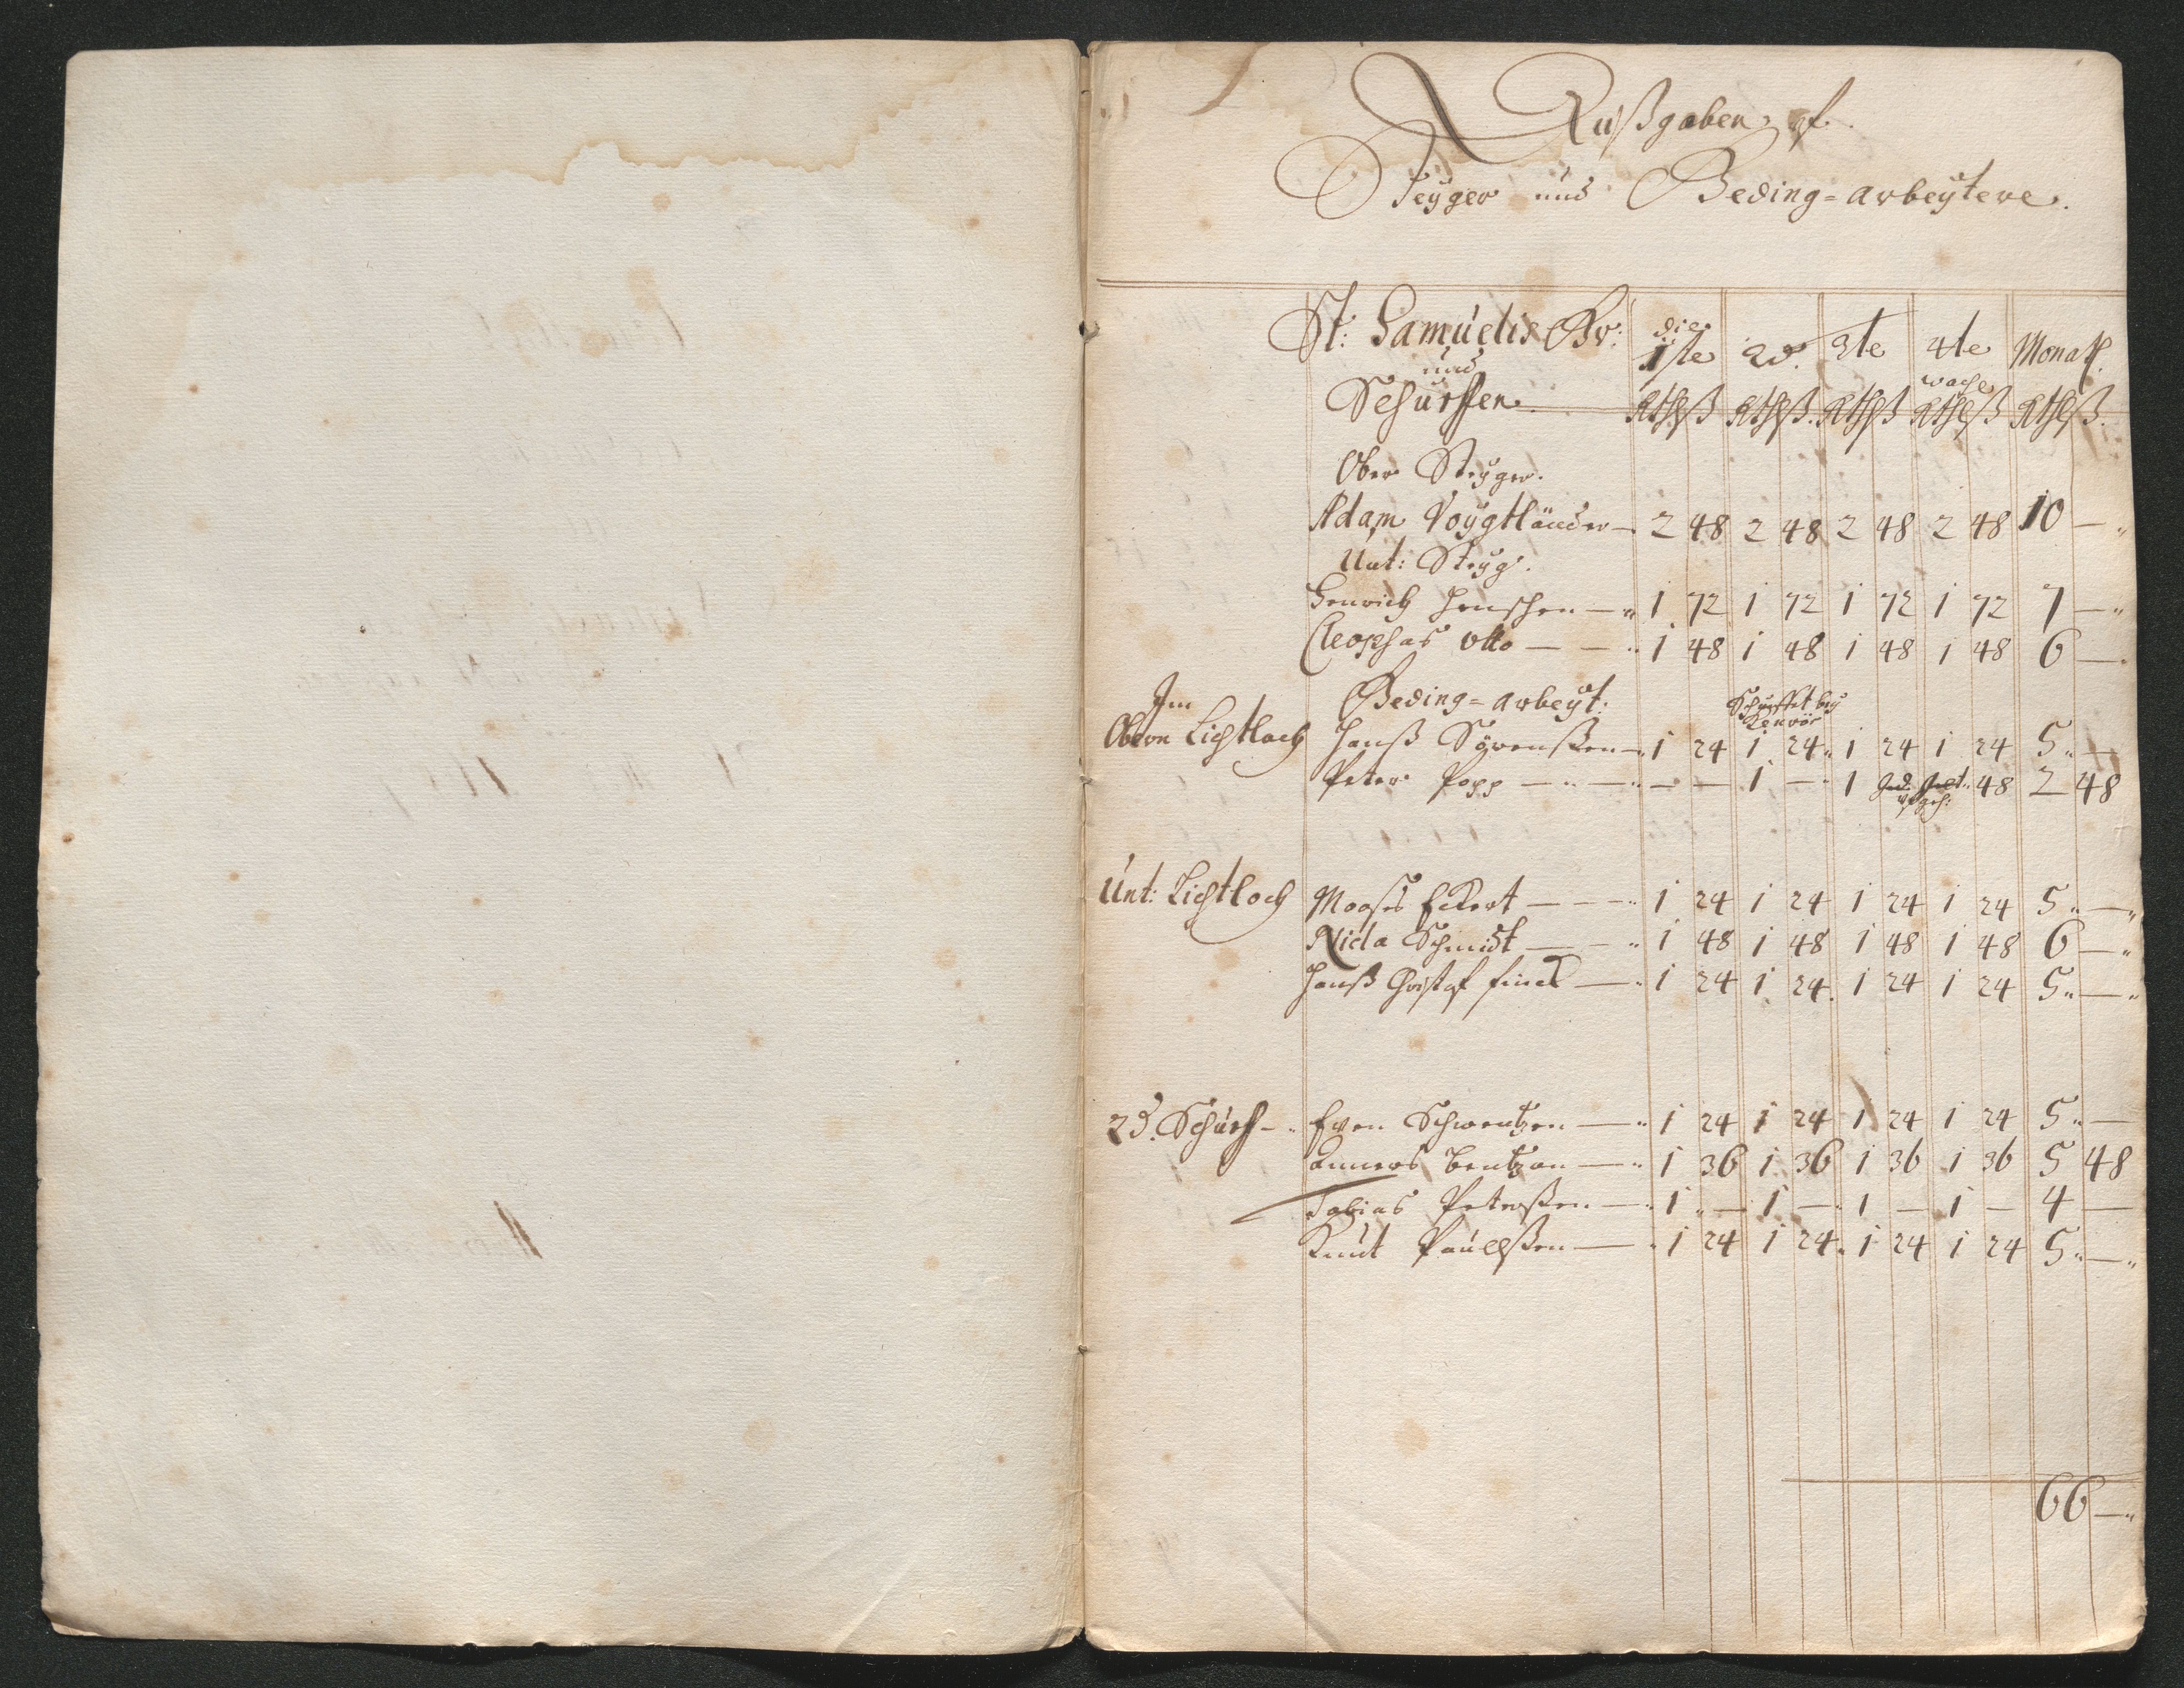 Außgaben, uf
Steyger und Beding=arbeytere.
St: Samuelis Gr: die 1ste 2d. 3te 4te Monatl.
und woche
Schurffen. Rthlß Rthlß. Rthlß Rthlß Rthlß.
Ober Steyger.
Adam Voygtländer — 2 48 2 48 2 48 2 48 10 —"
Unt: Steyg.
Henrich Henschen —" 1 72 1 72 1 72 1 72 7 —"
Cleophas Otto — — " 1 48 1 48 1 48 1 48 6 —
Im Beding=arbeyt: Schurffet bey
Obern Lichtloch Hanß Sörenßen — 1 24 1 24 " 1 24 1 24 5 " —
Peter Popp — " — " — — 1 — " 1 48 2 48
Unt: Lichtloch Mooses Eckert — — — " 1 24 1 24 1 24 1 24 5 " — "
Nicla Schmidt — — " 1 48 1 48 1 48 1 48 6 — "
Hanß Christof Finck — " 1 24 1 24. 1 24 1 24 5 " — "
2d. Schurf — " Even Schwentzen — " 1 24 1 24 1 24 1 24 5 " —
Anners Bentzon — " 1 36 1 36 1 36 1 36 5 48
Tobias Peterßen — " 1 " — 1 — " 1 — 1 — 4 —
Knut Paulßen — " 1 24 1 24 " 1 24 1 24 5 " — "
66 — "